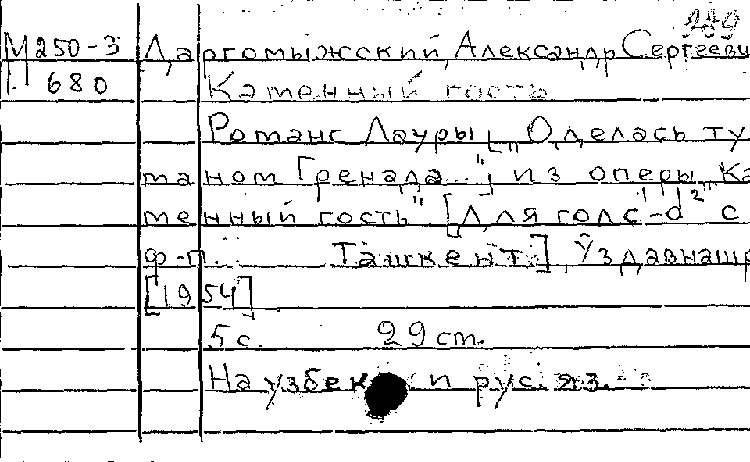 289
М250-3 Даргомыжский, Александр Сергееви
П 680 Каменный гость
Романс Лауры ["Оделась ту
маном Гренада..."] из оперы "Ка
менный гость" [Для голс
ф-п. Ташкент.] Ўздавнашр
[1954]
5 с. 29 см.
На узбек и рус. яз.